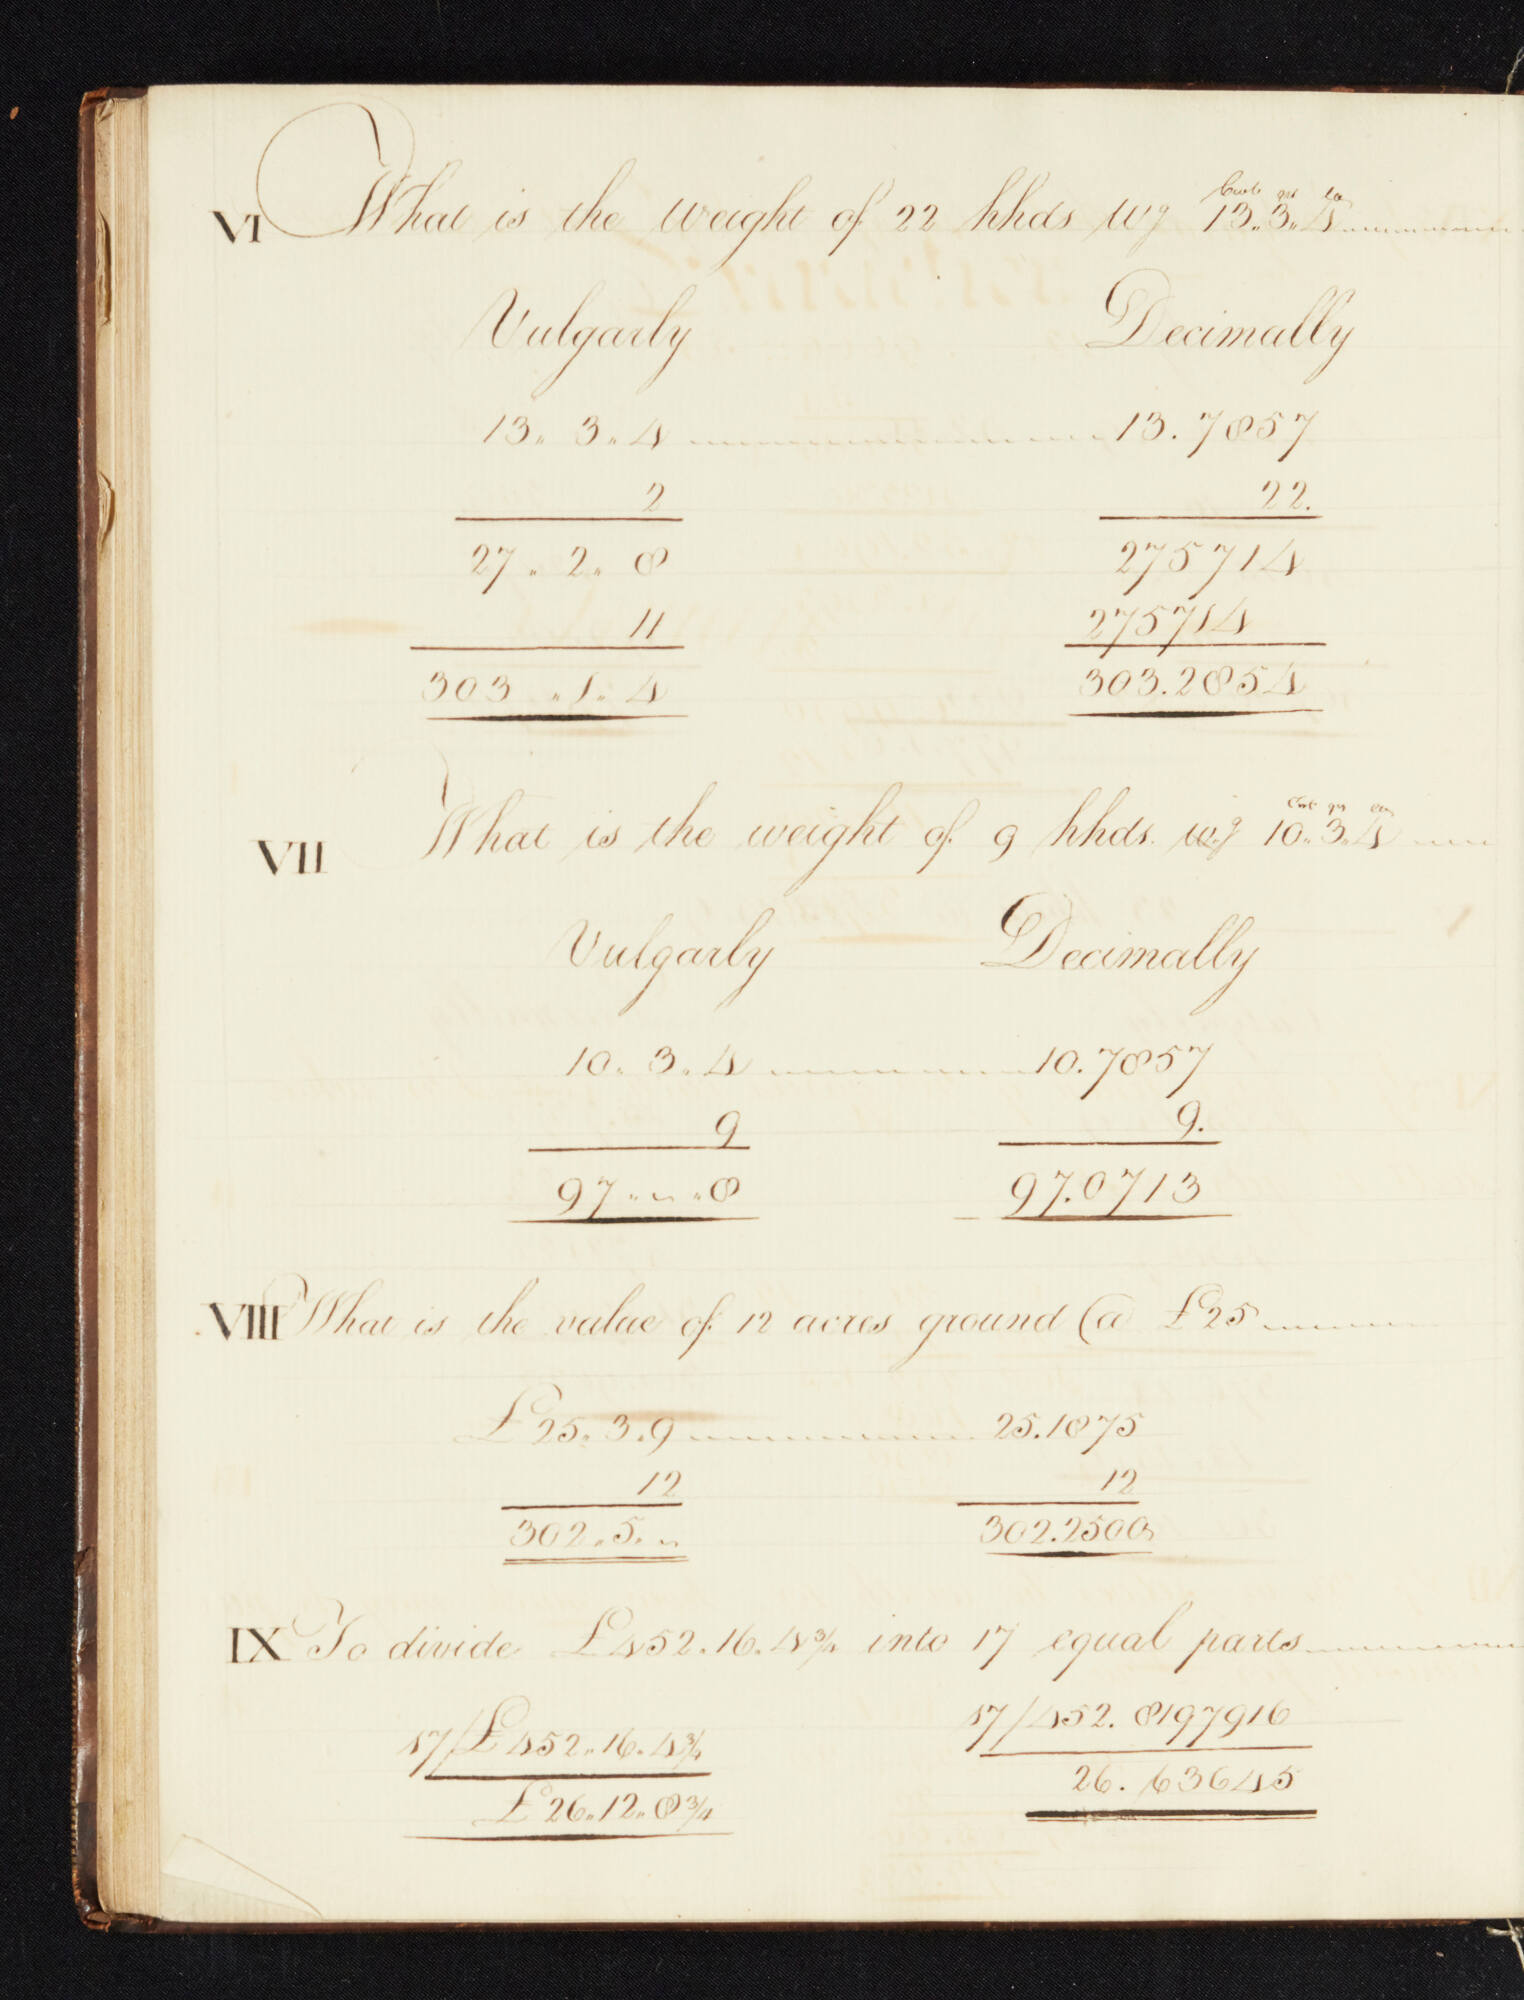 Cwt qrs lb
VI What is the weight of 22 hhds wg 13.. 3.. 4
Vulgarly Decimally
13.. 3.. 4 13.7857
2 22.
27.. 2.. 8 275714
11 275714
303..1..4 303.2854
Cwt qrs
VII What is the weight of 9 hhds. wg 10.. 3.. 4
Vulgarly Decimally
10.. 3.. 4 10.7857
9 9.
97.. ~ ..8 97.0713
VIII What is the value of 12 acres ground @ £25
£25.. 3.9 25.1875
12 12
302.. 5. ~ 302.2500
IX To divide £452.16.4¾ into 17 equal parts
17/£452..16.4¾ 17/452.8197916
£26..12..8¾ 26.63645